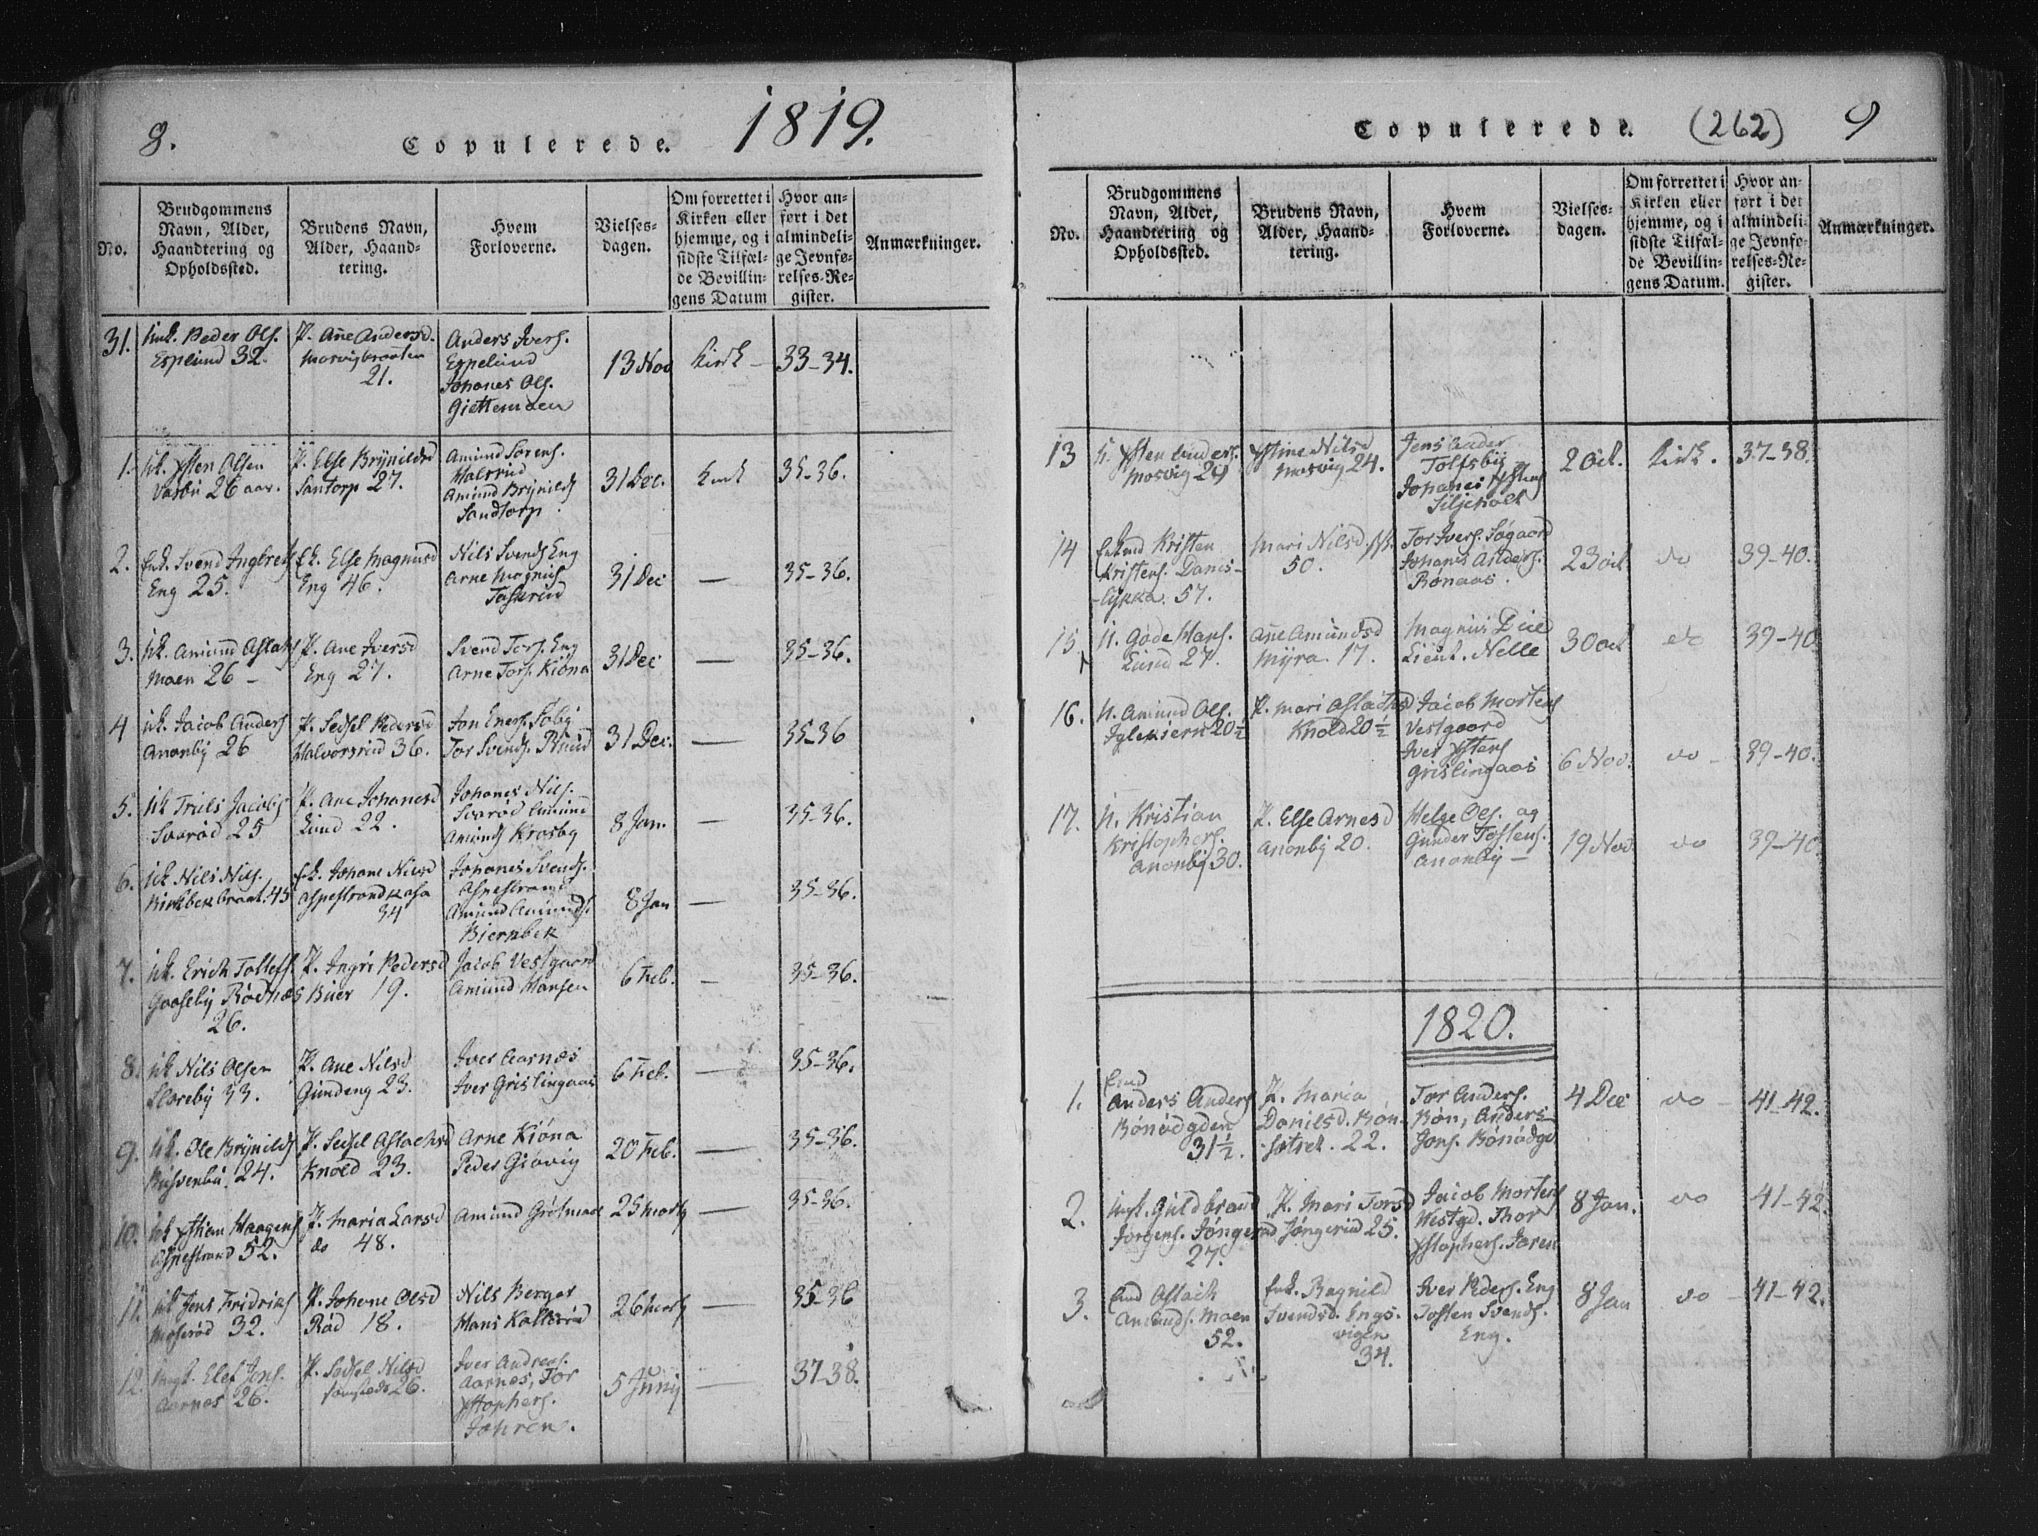 8.
Copulerede.
1819.
No.
Brudgommens
Navn, Alder,
Haandtering og
Opholdssted.
Brudens Navn,
Alder, Haand-
tering.
Hvem
Forloverne.
Vielses-
dagen.
Om forrettet i
Kirken eller
hjemme, og i
sidste Tilfæl-
de Bevillin-
gens Datum
Hvor an-
ført i det
almindeli-
ge Jevnfø-
relses-Re-
gister.
Anmærkninger.
31.
Peder Ols.
Espelund 32.
P. Ane Andersd.
Morvigbraaten
21.
Anders Ivers.
Espelund
Johanes Ols.
Giettemoen
13 Nov
Kirk
33-34.
1.
Uk. Xsten Olsen
Vasbu 26 aar.
P. Else Brynildsd
Santorp 27.
Amund Sorens.
Halsrud
Amund Brynilds
Sandtorp
31 Dec.
Kirk
35-36.
2.
Enk. Svend Ingbrets
Eng 25.
Ek. Else Magnusd
Eng 46.
Nils Svends Eng
Arne Magnus
31 Dec
—
35-36.
3.
Uk. Amund Aslaks
Moen 26 -
P. Ane Iversd
Eng 27.
Svend Tors. Eng
Arne Tors. Kiøna
31 Dec
—
35-36.
4
Uk. Jacob Anders
Anonby 26
P. Sedsel Pedersd
Halvorsrud 36.
Jon Eners. Soby
Tor Svends.
31 Dec.
—
35-36
5.
Uk Truls Jacobs
Svarød 25
P. Ane Johanesd
Lund 22.
Johanes Nils.
Svarød Amund
Amunds Krosby
8 Jan.
—
35-36.
6.
Uk Nils Nils.
Birkbekbraat. 45
Ek. Johane Nilsd
Aspestrandkasa
34
Johanes Svends.
Aspestrand
Amund Amunds.
Biernbek
8 Jan
—
35-36.
7.
Uk. Erich Tollefs.
Gaaseby Rødnæs
26.
P. Ingri Pedersd
Buer 19.
Jacob Vestgaard
Amund Hansen
6 Feb.
—
35-36.
8.
Uk Nils Olsen
Sloreby 33.
P. Ane Nilsd
Gundeng 23.
Iver Aarnes
Iver Grislingaas
6 Feb.
—
35-36.
9.
Uk. Ole Brynilds
24.
P. Sedsel Aslachsd
Knold 23.
Arne Kiøna
Peder Giøvig
20 Feb.
—
35-36.
10.
Uk Xstian Haagens
Aspestrand 52.
P. Maria Larsd
do 48.
Amund
25 Marty
35-36.
11.
Uk Jens Fridriks
Moserød 32.
P. Johane Olsd
Rød 18.
Nils Berger
Hans Kolkerød
26 Marty
—
35-36
12.
Elef Jons.
Aarnes 26.
P. Sedsel Nilsd
26.
Iver Andreas.
Aarnes, Tor
Xstophers.
Johren.
5 Juny
—
37-38.
Copulerede.
(262)
9
No.
Brudgommens
Navn, Alder,
Haandtering og
Opholdssted.
Brudens Navn,
Alder, Haand-
tering.
Hvem
Forloverne.
Vielses-
dagen.
Om forrettet i
Kirken eller
hjemme, og i
sidste Tilfæl-
de Bevillin-
gens Datum.
Hvor an-
ført i det
almindeli-
ge Jevnfø-
relses-Re-
gister.
Anmærkninger.
13
U. Xsten Anders.
Mosvig 29
Xstine Nilsd
Mosvig 24.
Jens Ander
Tolfsby
Johanes Xstens
Siljeholt
2 Oct.
Kirk.
37-38.
14
Enkmd Kristen
Kristens. Danis-
-lykka. 57.
Mari Nilsd
50.
Tor Ivers. Søgaard
Johanes Anders.
Rønaas.
23 oct
do
39-40.
15.
U. Gøde Hans.
Lund 27.
Ane Amundsd
Myra. 17.
Magnus Due
Lieut. Nelle
30 oct
do
39-40
16.
U. Amund Ols.
Iglekiern 20½
P. Mari Aslachsd
Knold 20½
Jacob Mortens
Vestgaard
Iver Xstens
Grislingaas
6 Nov.
do
39-40.
17.
U. Kristian
Kristophers.
Anonby 30.
P. Else Arnesd
Anonby 20.
Helge Ols. og
Gunder Tostens.
Anonby —
19 Nov
do
39-40
1820.
1.
Anders Anders
Bønødgden
31½.
P. Maria
Danilsd. Bøn-
-sætret. 22.
Tor Anders.
Bøn, Anders
Jons. Bønødgd
4 Dec
do
41-42.
2.
Ungk. Guldbrand
Jorgens. Jøngerud
27.
P. Mari Torsd
Jøngerud 25.
Jacob Mortens
Westgd. Thor
Xstophers. Joren
8 Jan.
do
41-42.
3.
Aslach
Amunds. Moen
52.
Enk. Ragnild
Svendsd. Engs-
vigen
34.
Iver Peders. Eng
Tosten Svends.
Eng.
8 Jan
do
41-42.